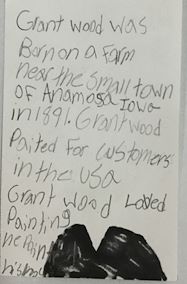 Grant wood was
Born on a Farm
near the small town
OF Anamosa Iowa
in 1891. Grant wood
Paited For customers
in the usa
Grant wood Loved
Painting
he Pain